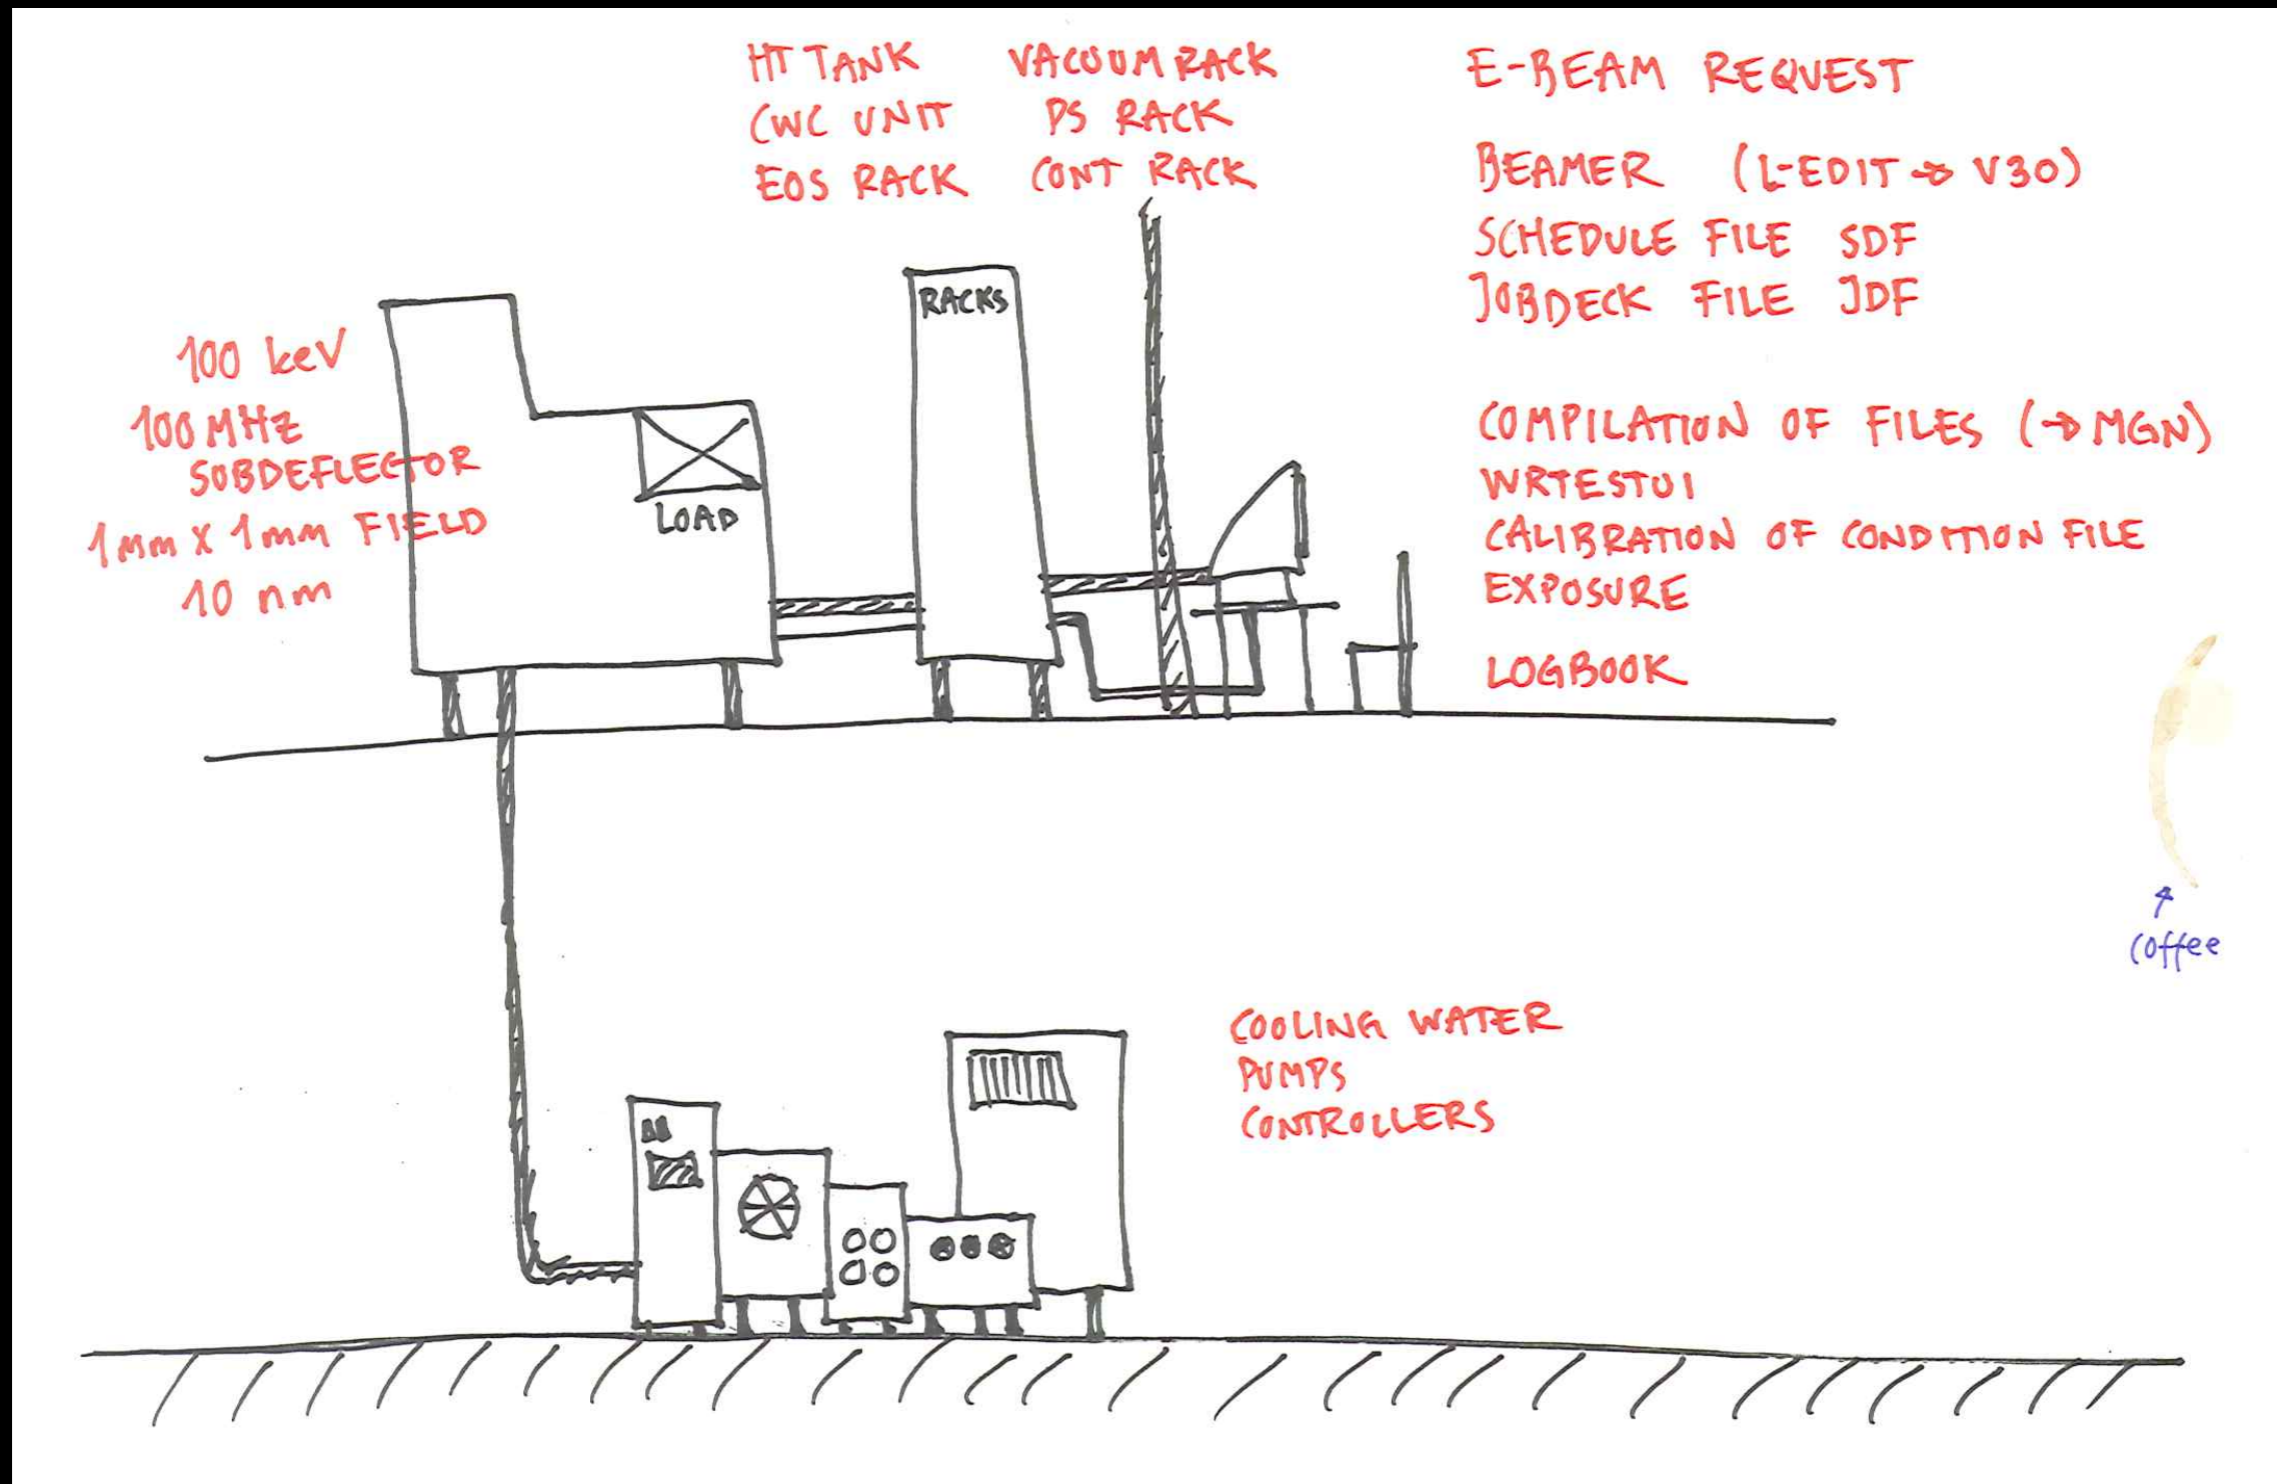 HT TANK
CWC UNIT
EOS RACK
VACUUM RACK
PS RACK
CONT RACK
E-BEAM REQUEST
BEAMER (L-EDIT → V30)
SCHEDULE FILE SDF
JOBDECK FILE JDF
COMPILATION OF FILES (→ MGN)
WRTESTUI
CALIBRATION OF CONDITION FILE
EXPOSURE
LOGBOOK
100 keV
100 MHz
SUBDEFLECTOR
1mm x 1mm FIELD
10 nm
RACKS
LOAD
coffee
COOLING WATER
PUMPS
CONTROLLERS